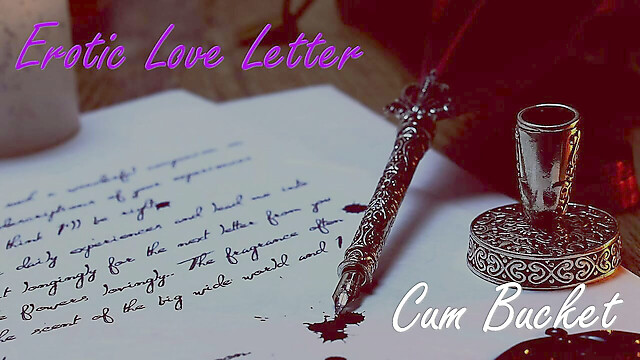 Erotic Love Letter
and a wonderful
descriptions of your experiences
think I'll be right
daily experiences and had me
longingly for the next letter from you
flowers lovingly. The fragrance often
the scent of the big wide world and I
Cum Bucket